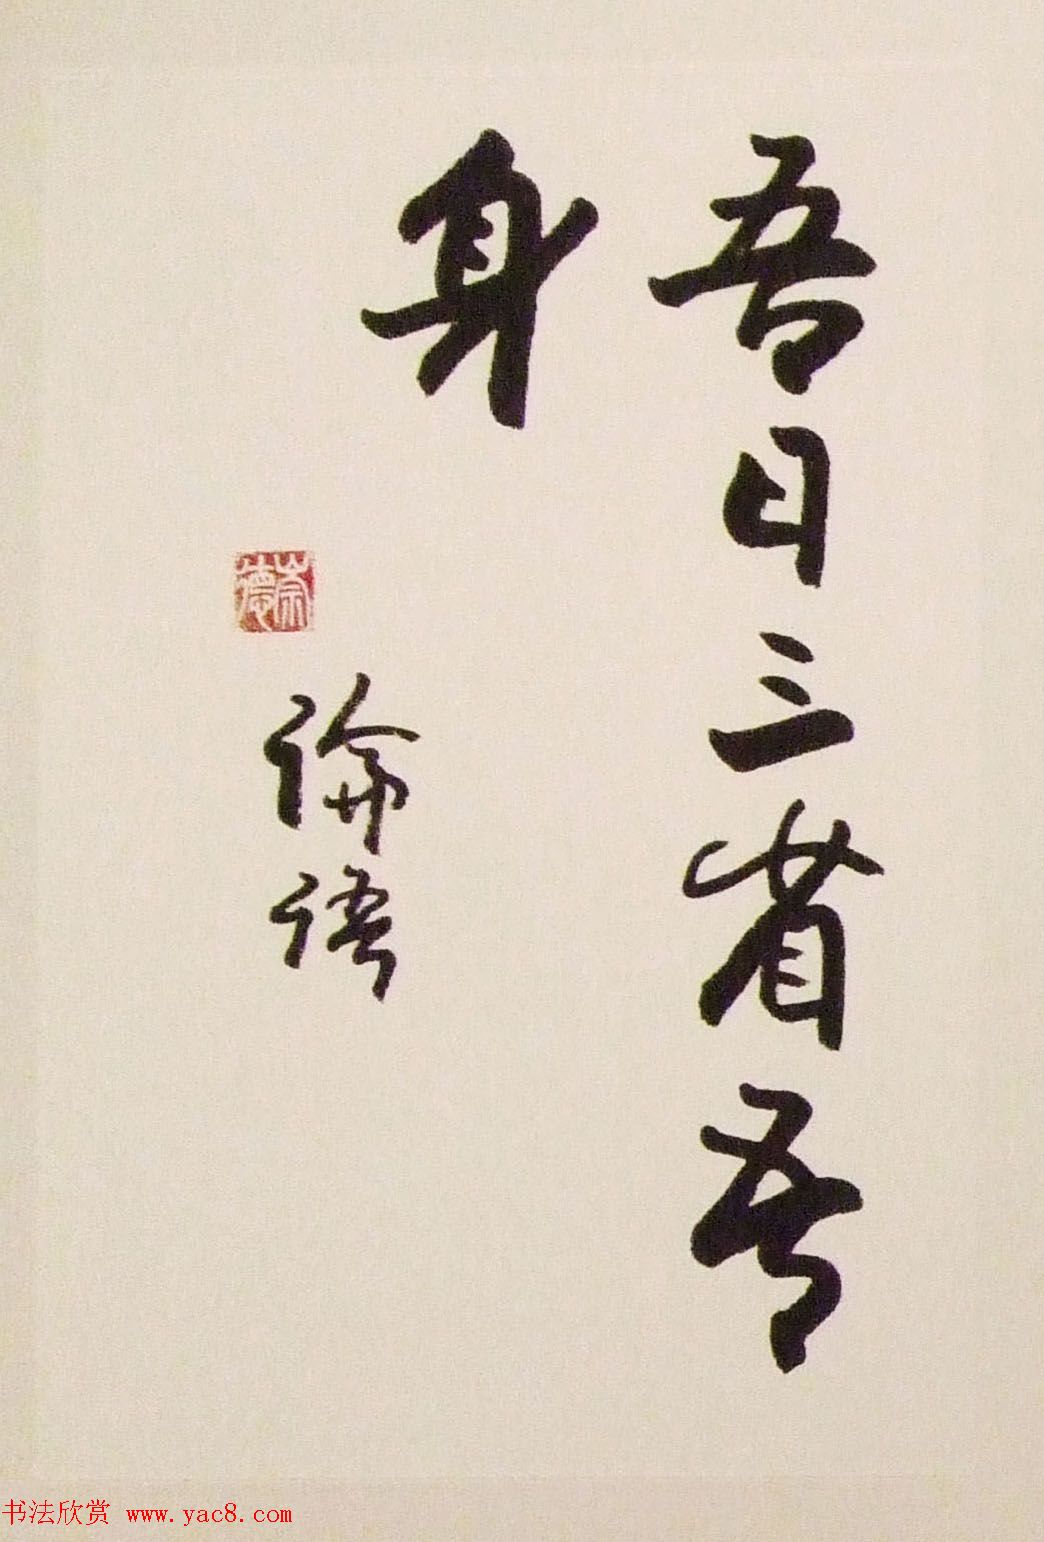 吾日三省吾
身
論語
崇德
书法欣赏 www.yac8.com